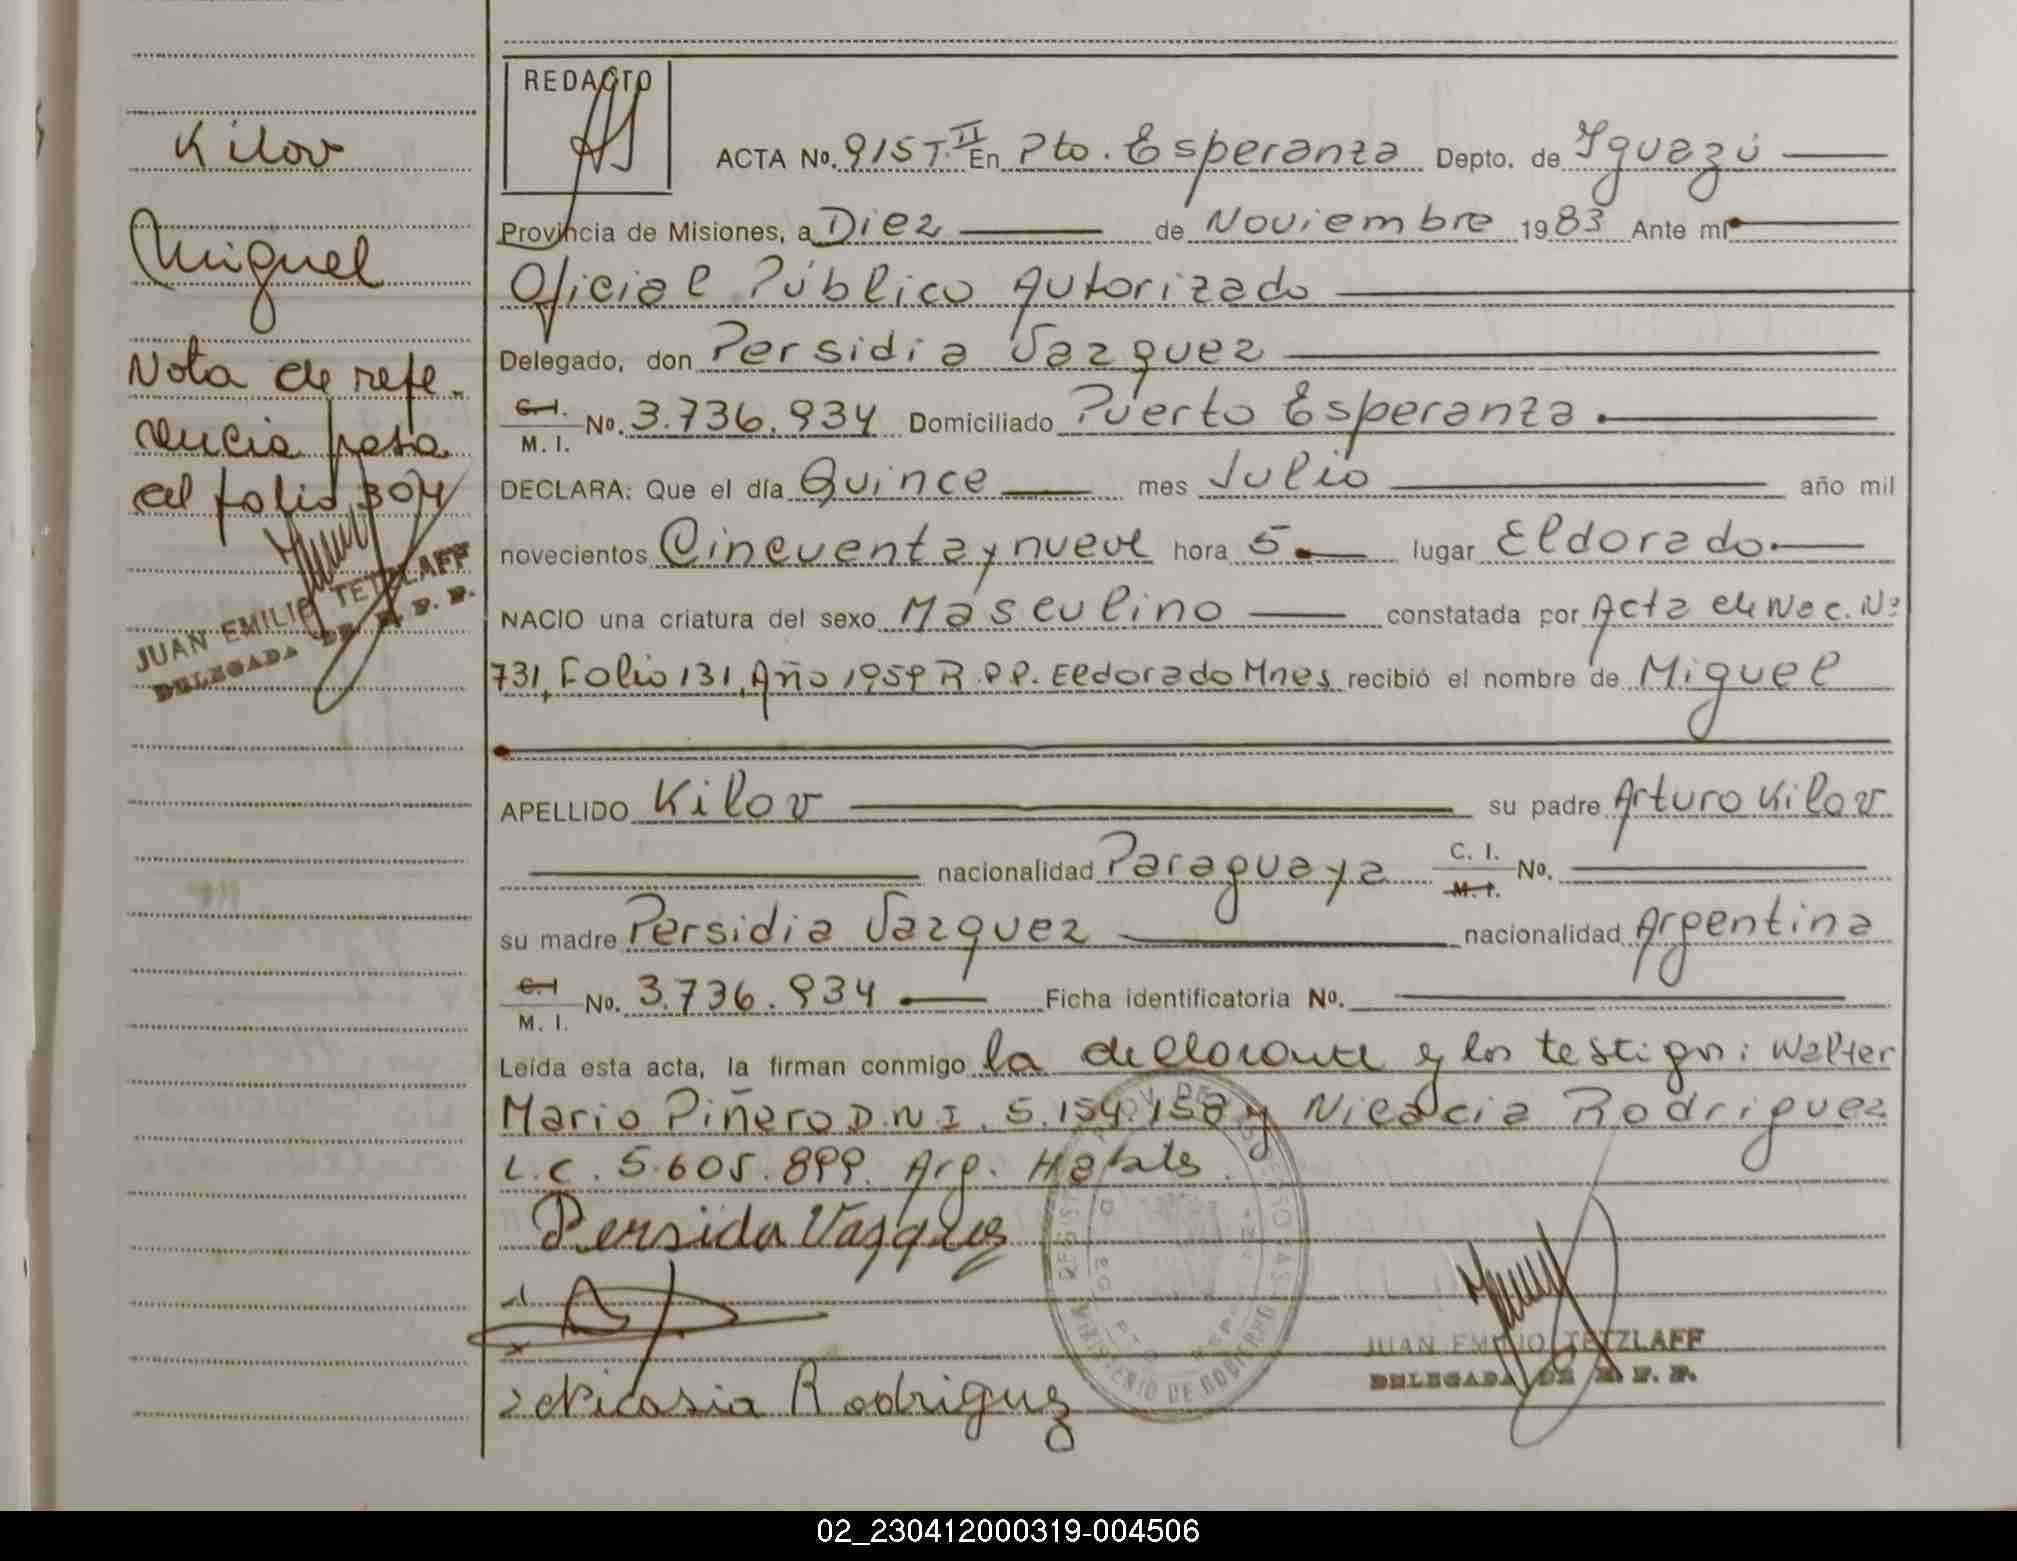 Kilov
Miguel
Nota de refe-
rencia pasa
al folio 304
JUAN EMILIO TETZLAFF
DELEGADA DE R. P. P.
REDACTO
ACTA No. 915 T. II En Pto. Esperanza Depto. de Iguazú
Provincia de Misiones, a Diez de Noviembre 1983 Ante mí
Oficial Público Autorizado
Delegado, don Persidia Vazquez
C. I. M. I. No. 3.736.934 Domiciliado Puerto Esperanza
DECLARA: Que el día Quince mes Julio año mil
novecientos Cincuenta y nueve hora 5 lugar Eldorado
NACIO una criatura del sexo Masculino constatada por Acta de Nac. Nº
731, Folio 131, Año 1959 R.P.P. Eldorado Mnes recibió el nombre de Miguel
APELLIDO Kilov su padre Arturo Kilov
nacionalidad Paraguaya C. I. M. I. No.
su madre Persidia Vazquez nacionalidad Argentina
C. I M. I. No. 3.736.934 Ficha identificatoria No.
Leída esta acta, la firman conmigo la declarante y los testigos: Walter
Mario Piñero D.N.I. 5.154.158 y Nicacia Rodriguez
L.C. 5.605.899. Arg. Habls.
Persida Vazquez
Nicasia Rodriguez
MINISTERIO DE GOBIERNO
JUAN EMILIO TETZLAFF
DELEGADA DE R. P. P.
02_230412000319-004506